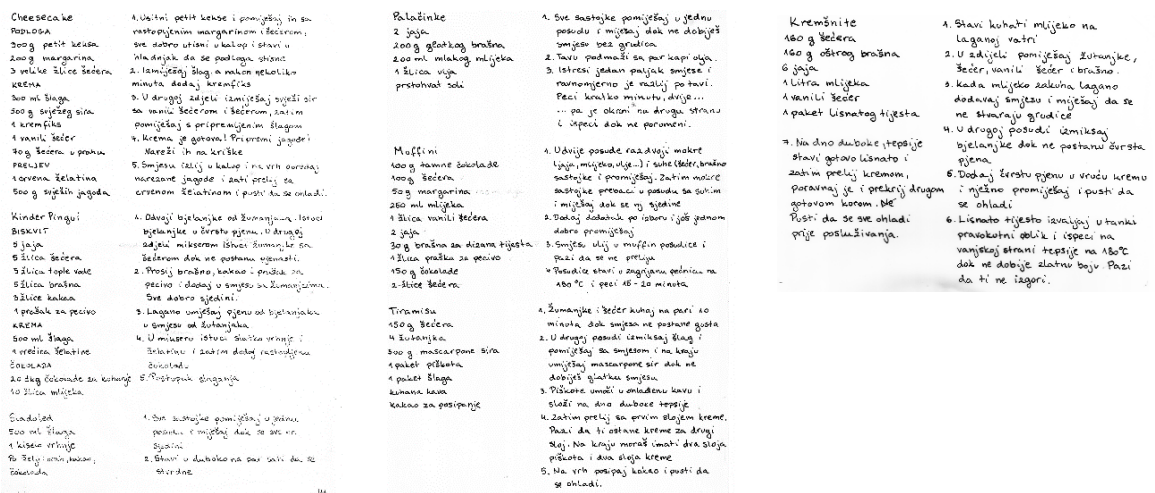 Cheesecake
PODLOGA
300g petit keksa
200g margarina
3 velike žlice šećera
KREMA
300 ml šlaga
500g svježeg sira
1 kremfiks
1 vanili šećer
70g šećera u prahu
PRELJEV
1 crvena želatina
500g svježih jagoda
1. Usitni petit kekse i pomiješaj ih sa
rastopljenim margarinom i šećerom,
sve dobro utisni u kalup i stavi u
hladnjak da se podloga stisne
2. Izmiješaj šlag, a nakon nekoliko
minuta dodaj kremfiks
3. U drugoj zdjeli izmiješaj svježi sir
sa vanili šećerom i šećerom, zatim
pomiješaj s pripremljenim šlagom
4. Krema je gotova! Pripremi jagode!
Nareži ih na kriške
5. Smjesu izlij u kalup i na vrh
narezane jagode i zatim prelij sa
crvenom želatinom i pusti da se ohladi.
Kinder Pingui
BISKVIT
5 jaja
5 žlica šećera
5 žlica tople vode
5 žlica brašna
3 žlice kakaa
1 prašak za pecivo
KREMA
500 ml šlaga
1 vrećica želatine
ČOKOLADA
20 dkg čokolade za kuhanje
10 žlica mlijeka
1. Odvoji bjelanjke od žumanjaka. Istuci
bjelanjke u čvrstu pjenu. U drugoj
zdjeli mikserom istuci žumanjke sa
šećerom dok ne postanu pjenasti.
2. Prosij brašno, kakao i prašak za
pecivo i dodaj u smjesu sa žumanjcima.
Sve dobro sjedini.
3. Lagano umiješaj pjenu od bjelanjaka
u smjesu od žutanjaka
4. U mikseru istuci slatko vrhnje i
želatinu i zatim dodaj rastopljenu
čokoladu
5. Postupak slaganja
Sladoled
500 ml šlaga
1 kiselo vrhnje
Po želji: orah, kakao,
čokolada
1. Sve sastojke pomiješaj u jednu
posudu i miješaj dok se sve ne
sjedini
2. Stavi u duboko na par sati da se
stvrdne
Palačinke
2 jaja
200g glatkog brašna
200 ml mlakog mlijeka
1 žlica ulja
prstohvat soli
1. Sve sastojke pomiješaj u jednu
posudu i miješaj dok ne dobiješ
smjesu bez grudica
2. Tavu podmaži sa par kapi olja.
3. Istresi jedan paljak smjese i
ravnomjerno je razlij po tavi.
Peci kratko minutu, dvije...
... pa je okreni na drugu stranu
i ispeci dok ne porumeni.
Moffini
100g tamne čokolade
100g šećera
50g margarina
250 ml mlijeka
1 žlica vanili šećera
2 jaja
30g brašna za dizana tijesta
1 žlica praška za pecivo
150g čokolade
2 žlice šećera
1. U dvije posude razdvoji mokre
(jaja, mlijeko, ulje...) i suhe (šećer, brašno
sastojke i promiješaj. Zatim mokre
sastojke prebaci u posudu sa suhim
i miješaj dok se ne sjedine
2. Dodaj dodatak po izboru i još jednom
dobro promiješaj
3. Smjesu ulij u muffin posudice i
pazi da se ne prelije
Posudice stavi u zagrijanu pećnicu na
180°C i peci 15-20 minuta
Tiramisu
150g šećera
4 žutanjka
500g mascarpone sira
1 paket piškota
1 paket šlaga
kuhana kava
kakao za posipanje
1. Žumanjke i šećer kuhaj na pari 10
minuta dok smjesa ne postane gusta
2. U drugoj posudi izmiksaj šlag i
pomiješaj sa smjesom i na kraju
umiješaj mascarpone sir dok ne
dobiješ glatku smjesu
3. Piškote umoči u ohlađenu kavu i
složi na dno duboke tepsije
4. Zatim prelij sa prvim slojem kreme.
Pazi da ti ostane kreme za drugi
sloj. Na kraju moraš imati dva sloja
piškota i dva sloja kreme
5. Na vrh posipaj kakao i pusti da
se ohladi.
Kremšnite
160g šećera
160g oštrog brašna
6 jaja
1 litra mlijeka
1 vanili šećer
1 paket lisnatog tijesta
1. Stavi kuhati mlijeko na
laganoj vatri
2. U zdjeli pomiješaj žutanjke,
šećer, vanili šećer i brašno.
3. Kada mlijeko zakuha lagano
dodavaj smjesu i miješaj da se
ne stvaraju grudice
4. U drugoj posudi izmiksaj
bjelanjke dok ne postanu čvrsta
pjena.
5. Dodaj čvrstu pjenu u vruću kremu
i nježno promiješaj i pusti da
se ohladi
6. Lisnato tijesto izvaljaj u tanki
pravokutni oblik i ispeci na
vanjskoj strani tepsije na 180°C
dok ne dobije zlatnu boju. Pazi
da ti ne izgori.
7. Na dno duboke tepsije
stavi gotovo lisnato i
zatim prelij kremom,
poravnaj je i prekrij drugom
gotovom korom. Ne
Pusti da se sve ohladi
prije posluživanja.